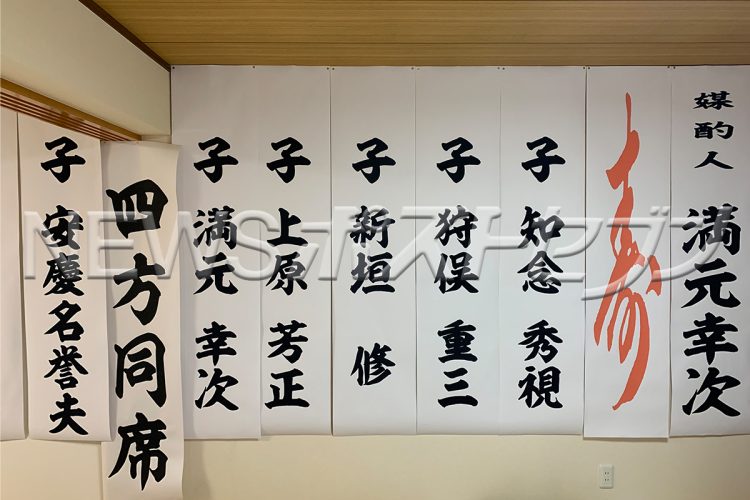 媒酌人 満元幸次
寿
子 知念 秀視
子 狩俣 重三
子 新垣 修
子 上原 芳正
子 満元 幸次
四方同席
子 安慶名誉夫
NEWSポストセブン